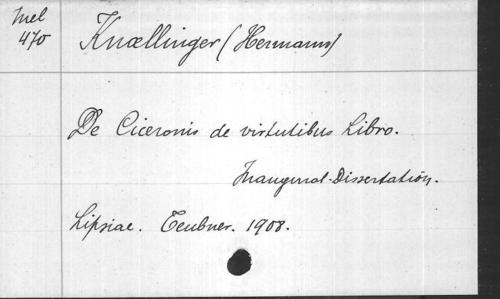 Mel
470
Knoellinger (Hermann)
De Ciceronis de virtutibus Libro.
Inaugural-Dissertation.
Lipsiae. Teubner. 1908.